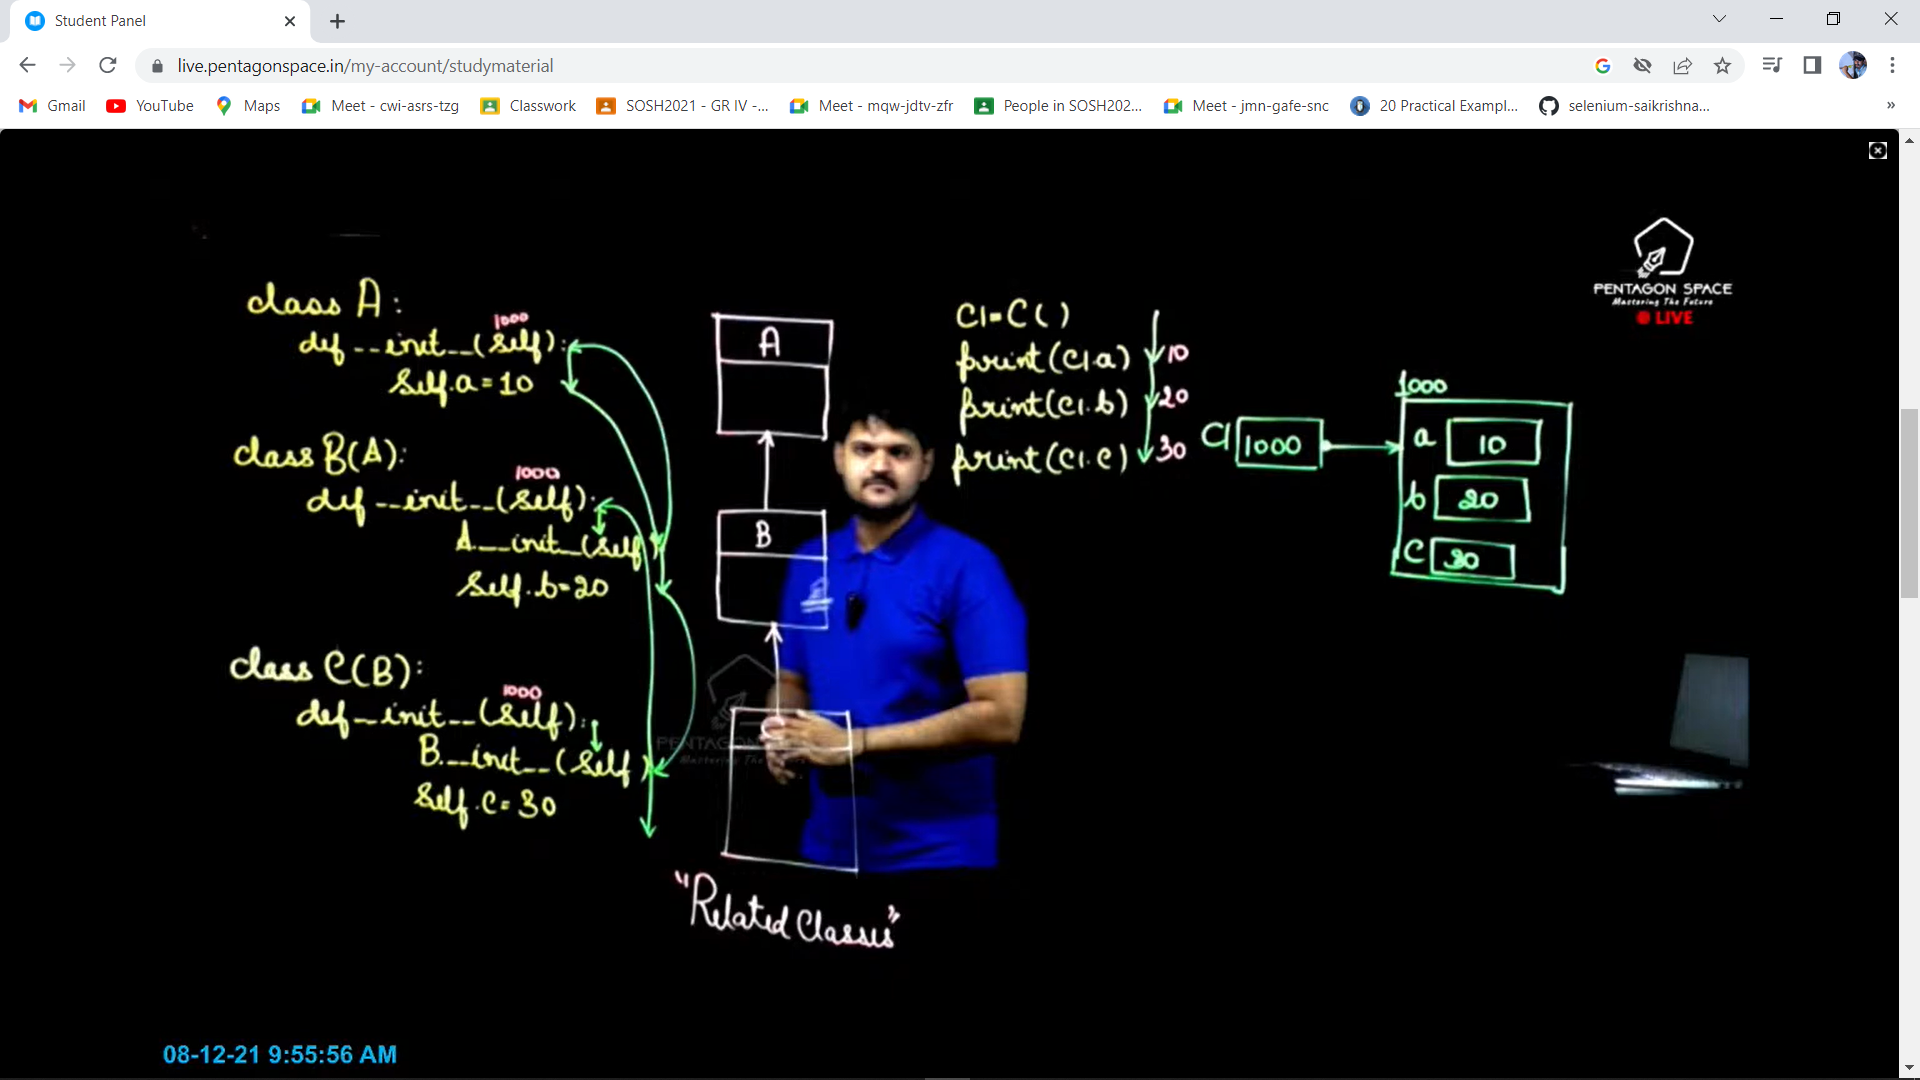 Student Panel
live.pentagonspace.in/my-account/studymaterial
Gmail
YouTube
Maps
Meet - cwi-asrs-tzg
Classwork
SOSH2021 - GR IV -...
Meet - mqw-jdtv-zfr
People in SOSH202...
Meet - jmn-gafe-snc
20 Practical Exampl...
selenium-saikrishna...
PENTAGON SPACE
Mastering The Future
LIVE
class A:
1000
def __init__(Self):
Self.a = 10
class B(A):
1000
def __init__(Self):
A.__init__(Self)
Self.b=20
class C(B):
1000
def __init__(Self):
B.__init__(Self)
Self.c = 30
A
B
C
"Related Classes"
C1=C()
print(C1.a) 10
print(C1.b) 20
print(C1.c) 30
C1 1000
1000
a 10
b 20
c 30
PENTAG
Mastering The
08-12-21 9:55:56 AM